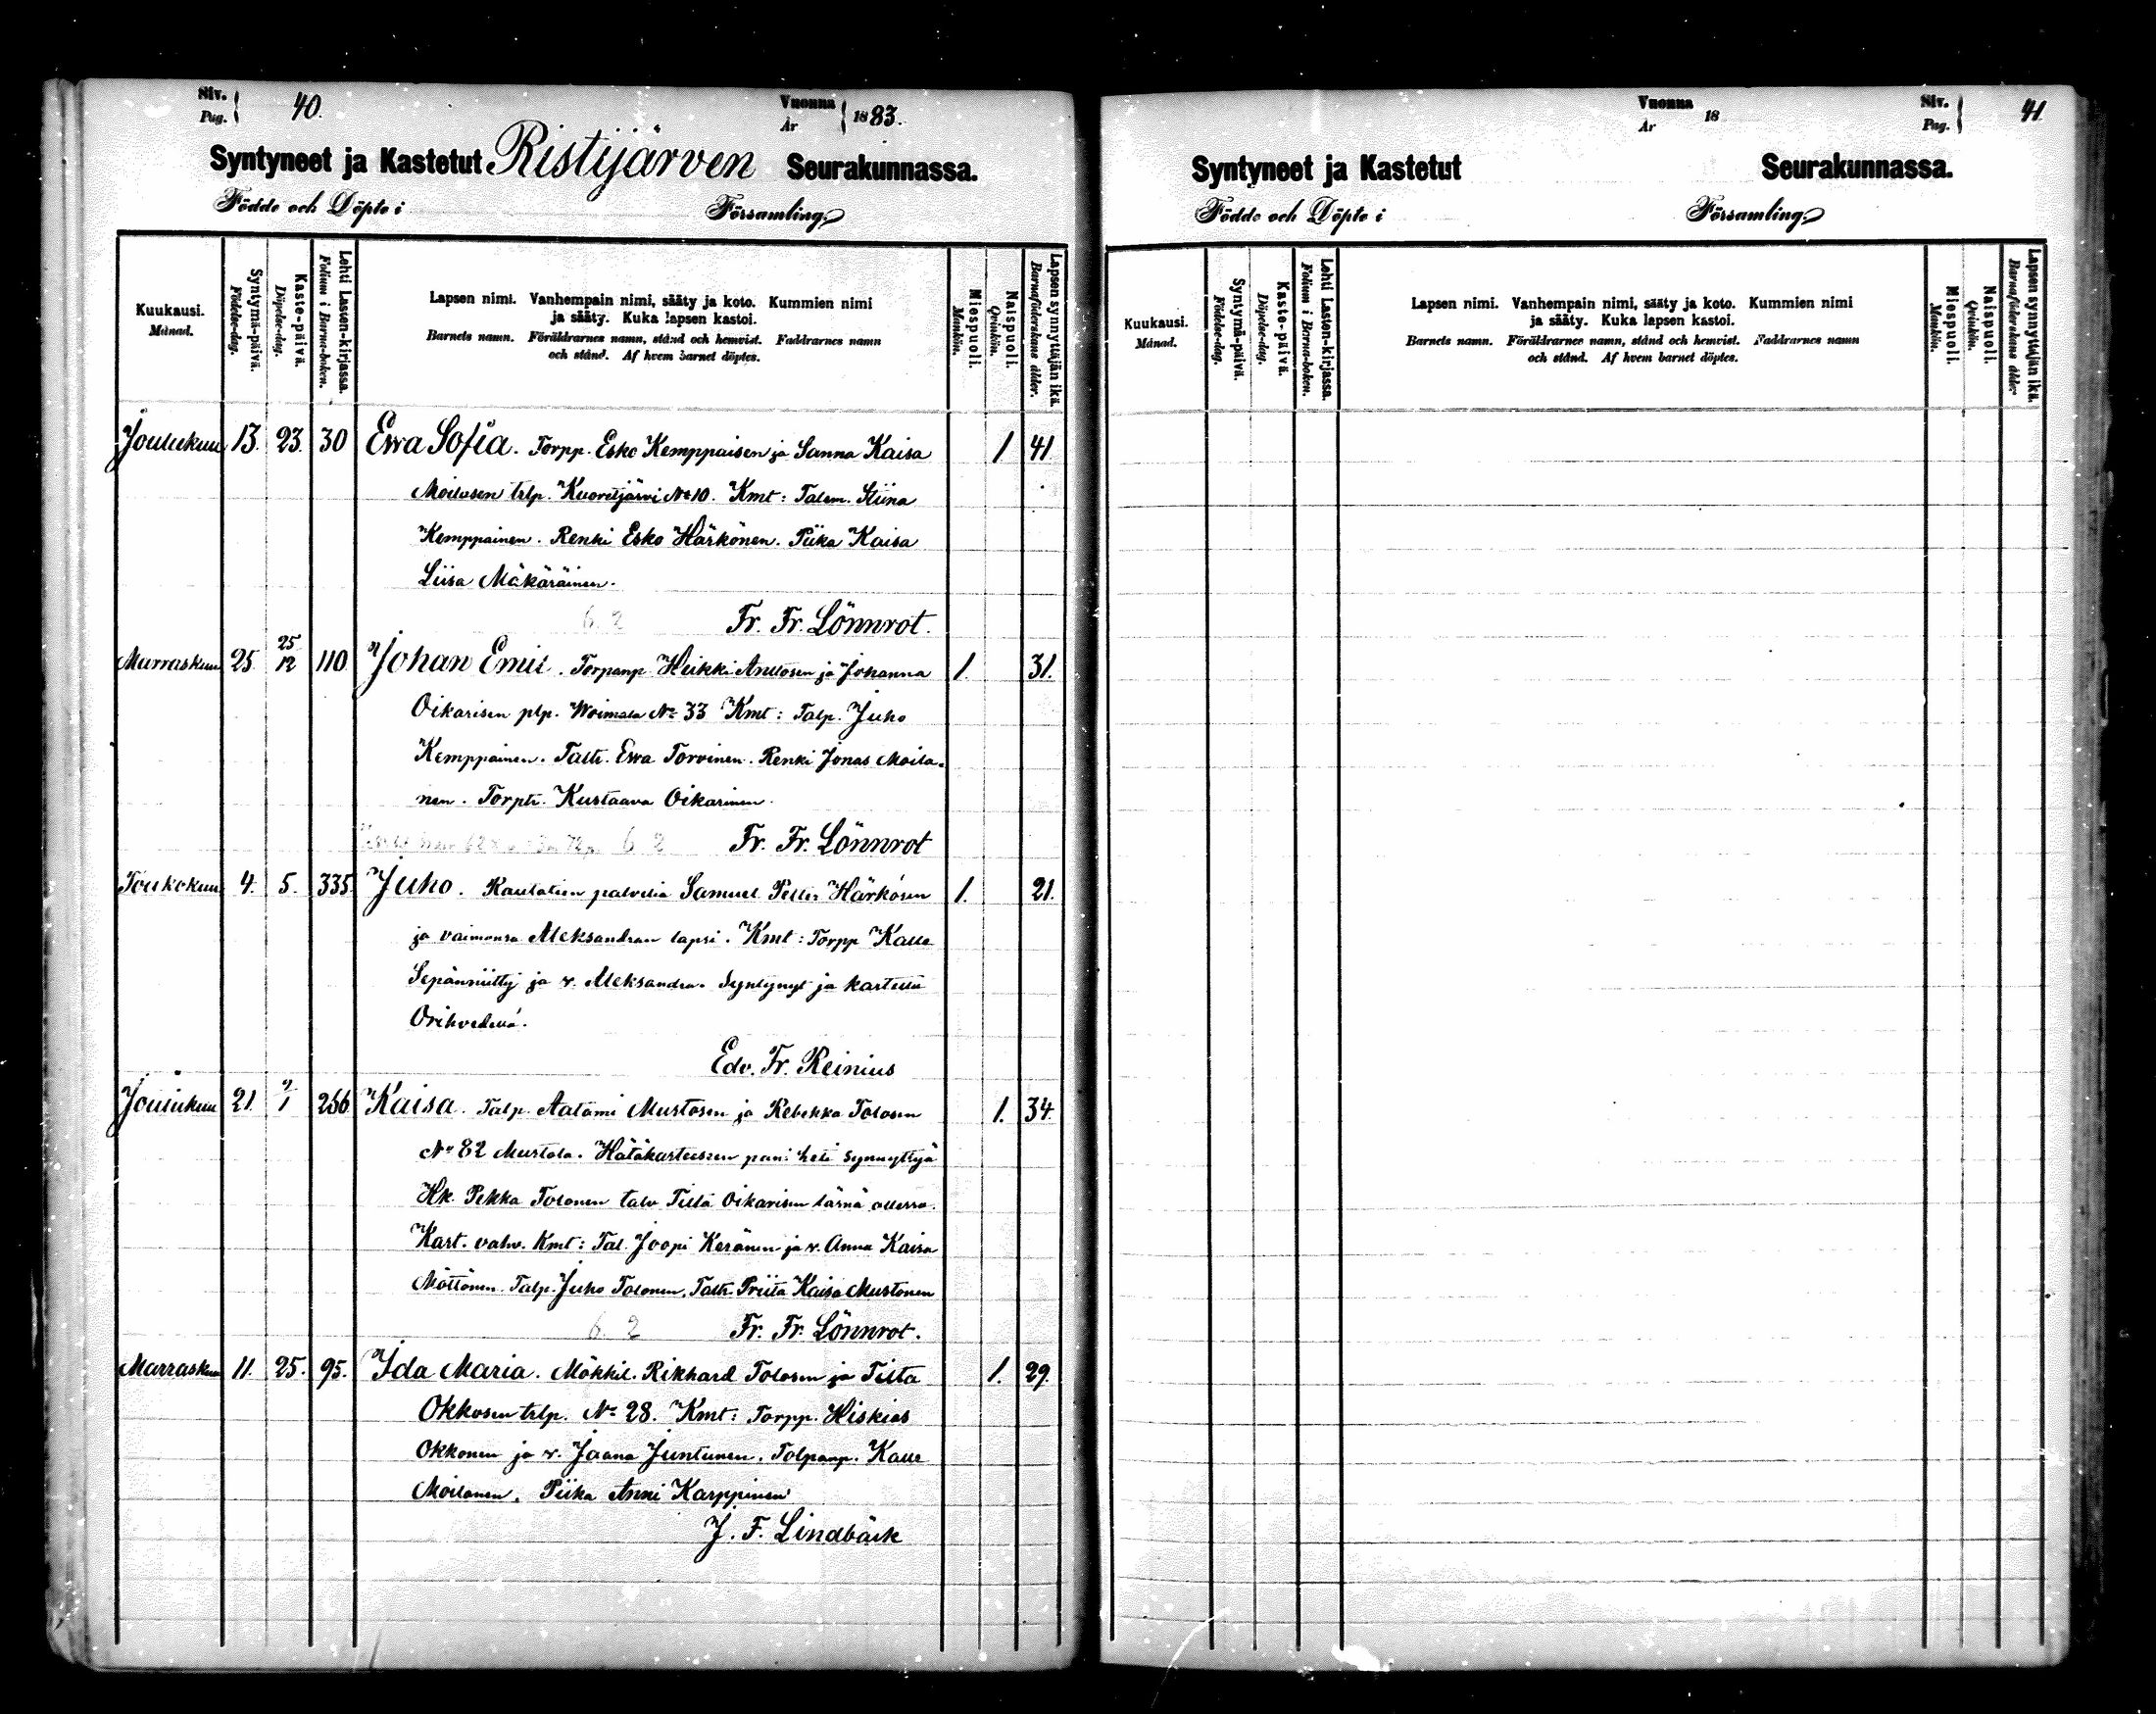 Siv. 40. Vuonna 1883.
Pag. År
Syntyneet ja Kastetut Ristijärven Seurakunnassa.
Födde och Döpte i Församling.
Kuukausi. Månad.
Syntymä-päivä. Födelse-dag.
Kaste-päivä. Döpelse-dag.
Lehti Lasten-kirjassa. Folium i Barna-boken.
Lapsen nimi. Vanhempain nimi, sääty ja koto. Kummien nimi
ja sääty. Kuka lapsen kastoi.
Barnets namn. Föräldrarnes namn, stånd och hemvist. Faddrarnes namn
och stånd. Af hvem barnet döptes.
Miespuoli. Mankön.
Naispuoli. Qvinkön.
Lapsen synnyttäjän ikä. Barnaföderskans ålder.
Joulukuu 13. 23. 30 Ewa Sofia. Torpp. Esko Kemppaisen ja Sanna Kaisa 1 41
Moilasen trlp. Kuorejärvi No 10. Kmt: Talem. Stiina
Kemppainen. Renki Esko Härkönen. Piika Kaisa
Liisa Mäkäräinen.
6. 2 Fr. Fr. Lönnrot.
Marraskuu 25. 25/12 110 Johan Emil. Torpanp. Heikki Anttosen ja Johanna 1. 31.
Oikarisen plp. Woimala No 33 Kmt: Talp. Juho
Kemppainen. Taltr. Ewa Torvinen. Renki Jonas Moila-
nen. Torptr. Kustaava Oikarinen.
6 2 Fr. Fr. Lönnrot
Toukokuu 4. 5. 335. Juho. Rautatien palvelia Samuel Petter Härkösen 1. 21.
ja vaimonsa Aleksandran lapsi. Kmt: Torpp Kalle
Sepänniitty ja v. Aleksandra. Syntynyt ja kastettu
Orihvedellä.
Edv. Fr. Reinius
Joulukuu 21. 2/1 256 Kaisa. Talp. Aatami Mustosen ja Rebekka Tolosen 1. 34.
No 82 Mustola. Hätäkasteesen pani heti synnyttyä
Hk. Pekka Tolonen talv Tiila Oikarisen läsnä ollessa.
Kast. vahv. Kmt: Tal. Joopi Keränen ja v. Anna Kaisa
Möttönen. Talp. Juho Tolonen. Taltr. Priita Kaisa Mustonen
6. 2 Fr. Fr. Lönnrot.
Marraskuu 11. 25. 95. Ida Maria. Mökkil. Rikhard Tolosen ja Tilta 1. 29.
Okkosen trlp. No 28. Kmt: Torpp. Hiskias
Okkonen ja v. Jaana Juntunen. Tolpanp. Kalle
Moilanen. Piika Anni Karppinen
J. F. Lindbäck
Vuonna 18 Siv. 41
År Pag.
Syntyneet ja Kastetut Seurakunnassa.
Födde och Döpte i Församling.
Kuukausi. Månad.
Syntymä-päivä. Födelse-dag.
Kaste-päivä. Döpelse-dag.
Lehti Lasten-kirjassa. Folium i Barna-boken.
Lapsen nimi. Vanhempain nimi, sääty ja koto. Kummien nimi
ja sääty. Kuka lapsen kastoi.
Barnets namn. Föräldrarnes namn, stånd och hemvist. Faddrarnes namn
och stånd. Af hvem barnet döptes.
Miespuoli. Mankön.
Naispuoli. Qvinkön.
Lapsen synnyttäjän ikä. Barnaföderskans ålder.